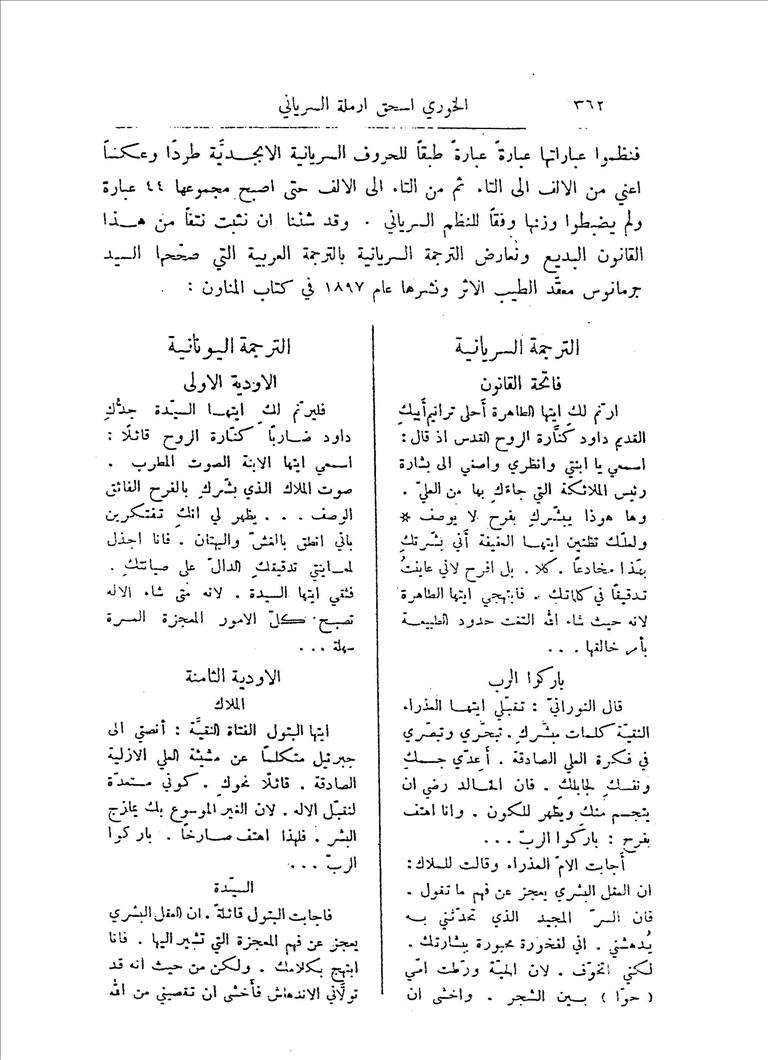 ٣٦٢
الخوري اسحق ارملة السرياني
فنظموا عباراتها عبارةً عبارةً طبقاً للحروف السريانية الابجديَّة طردًا وعكساً
اعني من الالف الى التاء ثم من التاء الى الالف حتى اصبح مجموعها ٤٤ عبارة
ولم يضبطوا وزنها وفقًا للنظم السرياني . وقد شئنا ان نثبت نتفاً من هذا
القانون البديع ونُعارض الترجمة السريانية بالترجمة العربية التي صحّحها السيد
جرمانوس معقَّد الطيب الاثر ونشرها عام ١٨٩٧ في كتاب المناون :
الترجمة السريانية
فاتحة القانون
ارنّم لك ايتها الطاهرة أَحلى ترانيم أَبيكِ
القديم داود كنَّارة الروح القدس اذ قال :
اسمعي يا ابنتي وانظري واصغي الى بشارة
رئيس الملائكة التي جاءَكِ بها من العليّ .
وها هوذا يبشّركِ بفرح لا يوصف *
ولعلّك تظنين ايتها العفيفة أَني بشّرتكِ
بهذا مخادعاً . كلا . بل افرح لاني عاينتُ
تدقيقاً في كلماتكِ . فابتهجي ايتها الطاهرة
لانه حيث شاء الله التفت حدود الطبيعة
بأمر خالقها . . .
باركوا الرب
قال النورانيّ : تقبّلي ايتها العذراء
النقيّة كلمات مبشّركِ . تبحَّري وتبصّري
في فكرة العلي الصادقة . أَعِدّي جسمكِ
ونفسكِ لجابلكِ . فان الخالد رضي ان
يتجسم منك ويظهر للكون . وانا اهتف
بفرح : باركوا الربّ . . .
أَجابت الامّ العذراء وقالت للملاك :
ان العقل البشري يعجز عن فهم ما تقول .
فان السرّ المجيد الذي تحدّثني به
يُدهشني . اني لفخورة محبورة ببشارتك .
لكني اتخوَّف . لان الحيَّة ورَّطت امّي
( حوّا ) بين الشجر . واخشى ان
الترجمة اليونانية
الاودية الاولى
فليرنّم لكِ ايتها السيّدة جدُّكِ
داود ضاربًا كنّارة الروح قائلًا :
اسمعي ايتها الابنة الصوت المطرب .
صوت الملاك الذي بشّركِ بالفرح الفائق
الوصف . . . يظهر لي انكِ تفتكرين
باني انطق بالغشّ والبهتان . فانا اجذل
لمعاينتي تدقيقكِ الدالّ على صيانتكِ .
فثقي ايتها السيدة . لانه متى شاء الاله
تصبح كلّ الامور المعجزة العسرة
سهلة . . .
الاودية الثامنة
الملاك
ايتها البتول الفتاة النقيَّة : أنصتي الى
جبرئيل متكلماً عن مشيئة العلي الازلية
الصادقة . قائلًا نحوكِ . كوني مستعدّة
لتقبّل الاله . لان الغير الموسوع بك يمازج
البشر . فلهذا اهتف صارخًا . باركوا
الربّ . . .
السيّدة
فاجابت البتول قائلةً . ان العقل البشري
يعجز عن فهم المعجزة التي تشير اليها . فانا
ابتهج بكلامك . ولكن من حيث انه قد
تولّاني الاندهاش فأَخشى ان تقصيني من الله